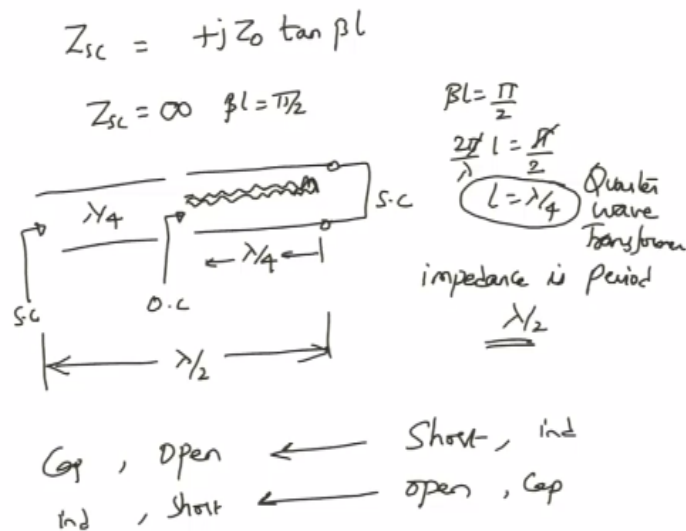 Z_SC = +j Z_0 tan βl
Z_SC = ∞ βl = π/2
βl = π/2
2π/λ l = π/2
l = λ/4
Quarter
wave
Transformer
impedance is Period
λ/2
λ/4
S.C
λ/4
S.C
O.C
λ/2
Cap, Open ← Short, ind
ind, Short ← open, Cap